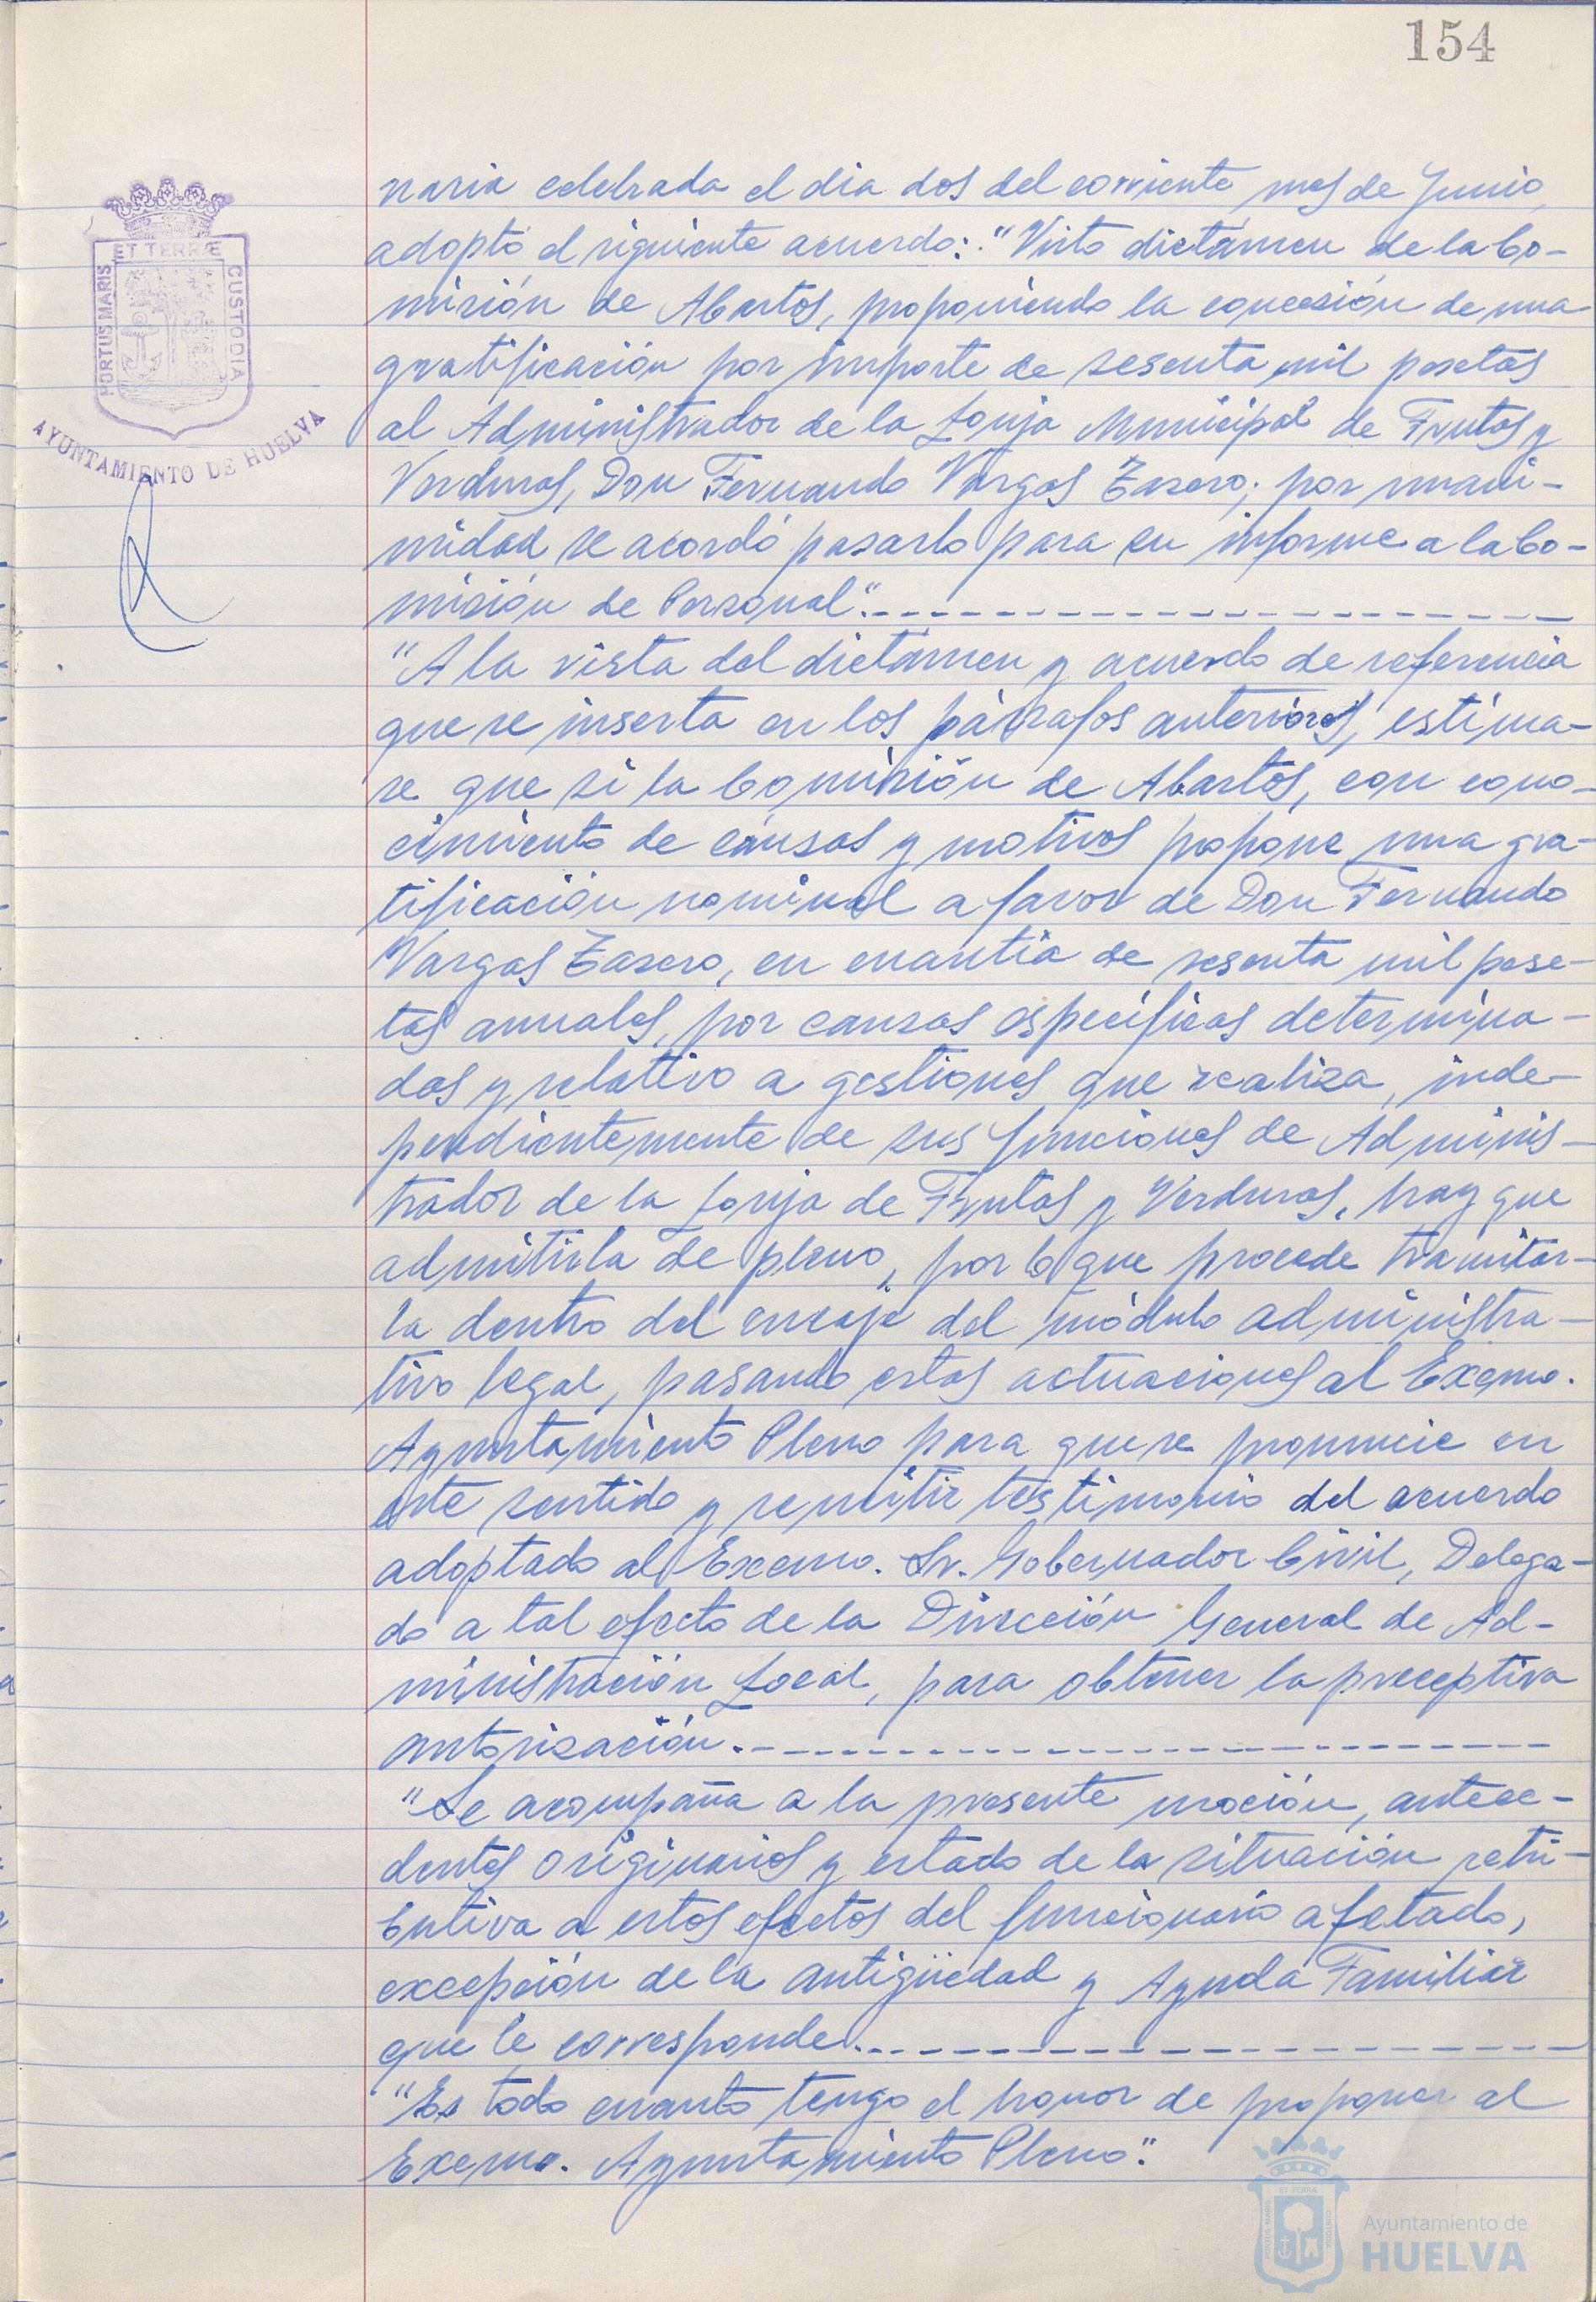 154
ET TERRÆ
PORTUS MARIS
CUSTODIA
AYUNTAMIENTO DE HUELVA
naria celebrada el dia dos del corriente mes de Junio,
adoptó el siguiente acuerdo: "Visto dictámen de la Co-
misión de Abastos, proponiendo la concesión de una
gratificación por importe de sesenta mil pesetas
al Administrador de la Lonja Municipal de Frutas y
Verduras, Don Fernando Vargas Zasero; por unani-
midad se acordó pasarlo para su informe a la Co-
misión de Personal".
"A la vista del dictámen y acuerdo de referencia
que se inserta en los párrafos anteriores, estima-
se que si la Comisión de Abastos, con cono-
cimiento de causas y motivos propone una gra-
tificación nominal a favor de Don Fernando
Vargas Zasero, en cuantía de sesenta mil pese-
tas anuales, por causas específicas determina-
das y relativo a gestiones que realiza, inde-
pendientemente de sus funciones de Adminis-
trador de la Lonja de Frutas y Verduras, hay que
admitirla de pleno, por lo que procede tramitar-
la dentro del encaje del módulo administra-
tivo legal, pasando estas actuaciones al Excmo.
Ayuntamiento Pleno para que se pronuncie en
este sentido y remitir testimonio del acuerdo
adoptado al Excmo. Sr. Gobernador Civil, Delega-
do a tal efecto de la Dirección General de Ad-
ministración Local, para obtener la preceptiva
autorización.
"Se acompaña a la presente moción, antece-
dentes originarios y estado de la situación retri-
butiva a estos efectos del funcionario afetado,
excepción de la antigüedad y Ayuda Familiar
que le corresponde.
"Es todo cuanto tengo el honor de proponer al
Excmo. Ayuntamiento Pleno".
Ayuntamiento de
HUELVA